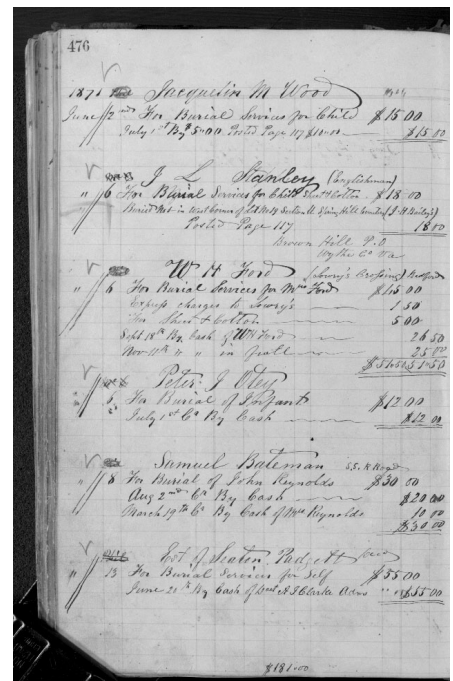 476
1871 Jacquelin M Wood
June 2nd For Burial Services for Child $15 00
July 1st By $5.00 Posted Page 117 $10.00 $15 00
J L Stanley (Englishman)
" 6 For Burial Services for Child Sheet & Cotton $18 00
Buried in West corner of Lot No Section Spring Hill Cemetery
Posted Page 117 18 00
Brown Hill P.O
Wythe Co Va
W H Ford (Lowry's Crossing) Bedford
" 6 For Burial Services for Mrs Ford $45 00
Express charges to Lowry's 1 50
For Sheet & Cotton 5 00
Sept 18th By Cash of W H Ford 26 50
Nov 11th " " in full 25 00
$51.50 51 50
Peter J Otey
" 6 For Burial of Infant $12 00
July 1st Cr By Cash $12 00
Samuel Bateman S.S. R Road
" 8 For Burial of John Reynolds $30 00
Aug 2nd Cr By Cash $20 00
March 19th Cr By Cash of Mrs Reynolds 10 00
$30 00
Est of Seaton Padgett
" 13 For Burial Services for Self $55 00
June 21st By Cash of A J Clarke Admr " " $55 00
$181.00